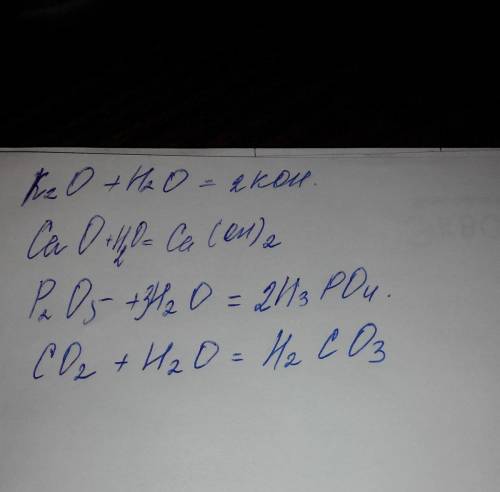 K₂O + H₂O = 2KOH.
CaO + H₂O = Ca(OH)₂
P₂O₅ + 3H₂O = 2H₃PO₄.
CO₂ + H₂O = H₂CO₃